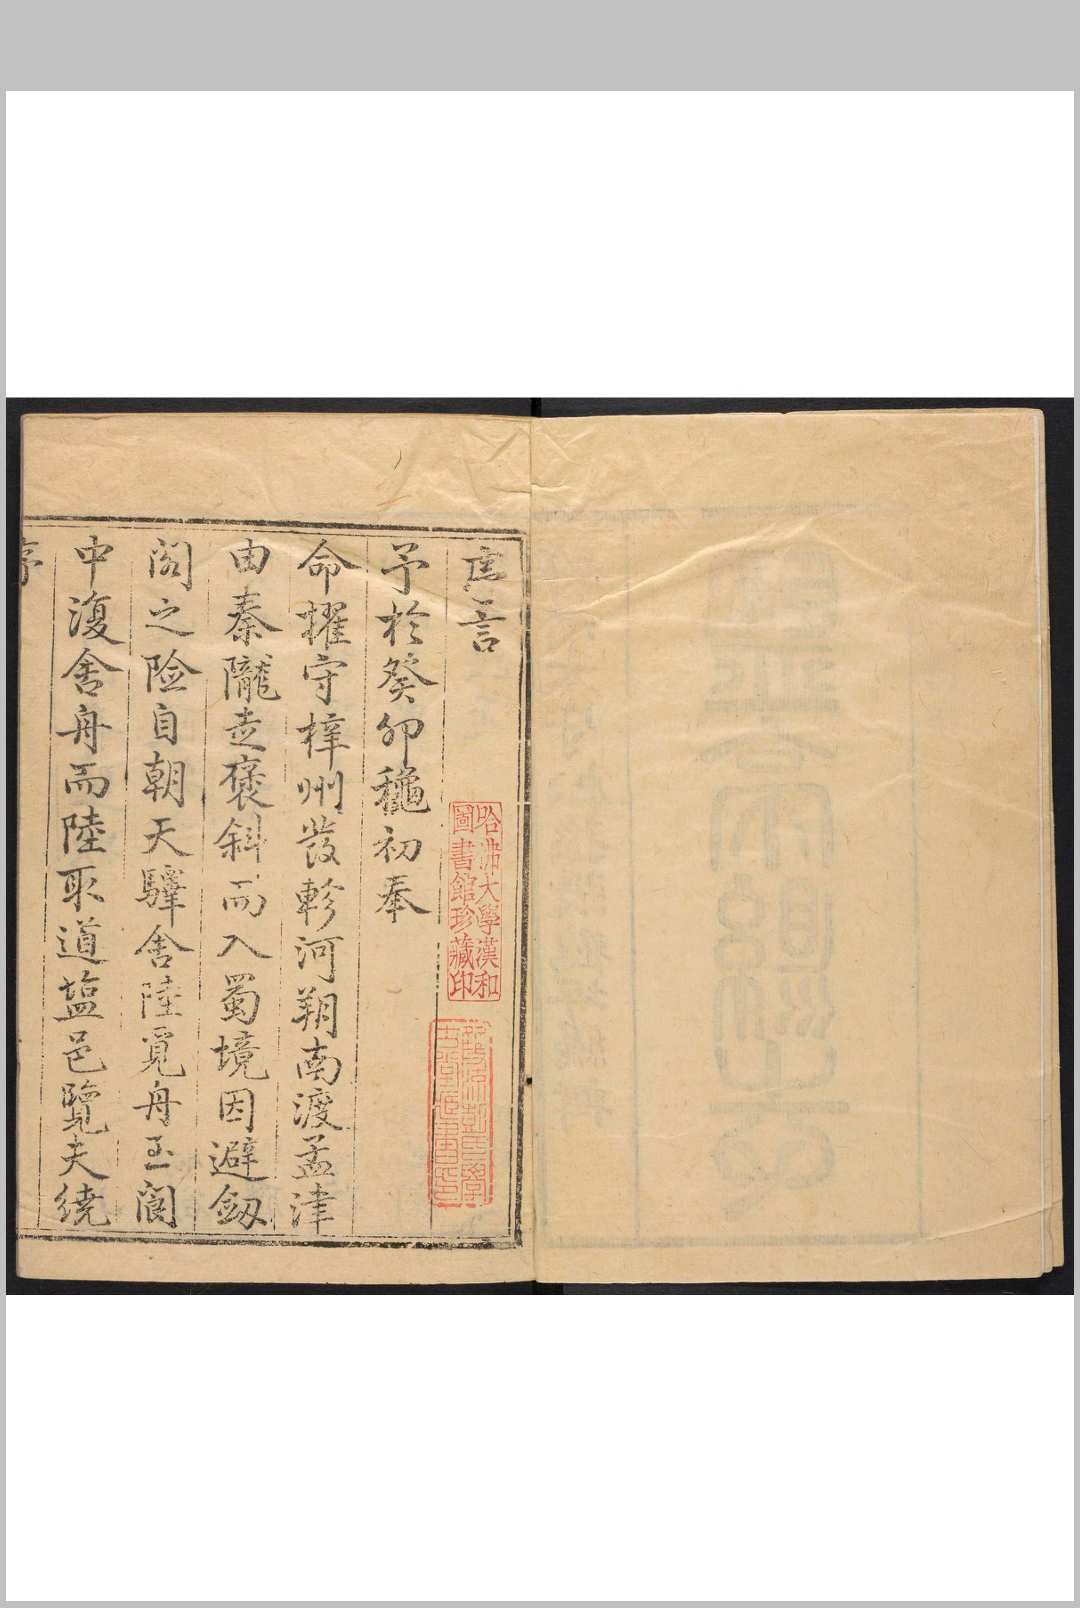 序言
予於癸卯龝初奉
命擢守梓州發軫河朔南渡孟津
由秦隴走褒斜而入蜀境因避劔
閣之險自朝天驛舍陸覓舟至閬
中復舍舟而陸取道塩邑覽夫繞
序
哈沸大學漢和
圖書館珍藏印